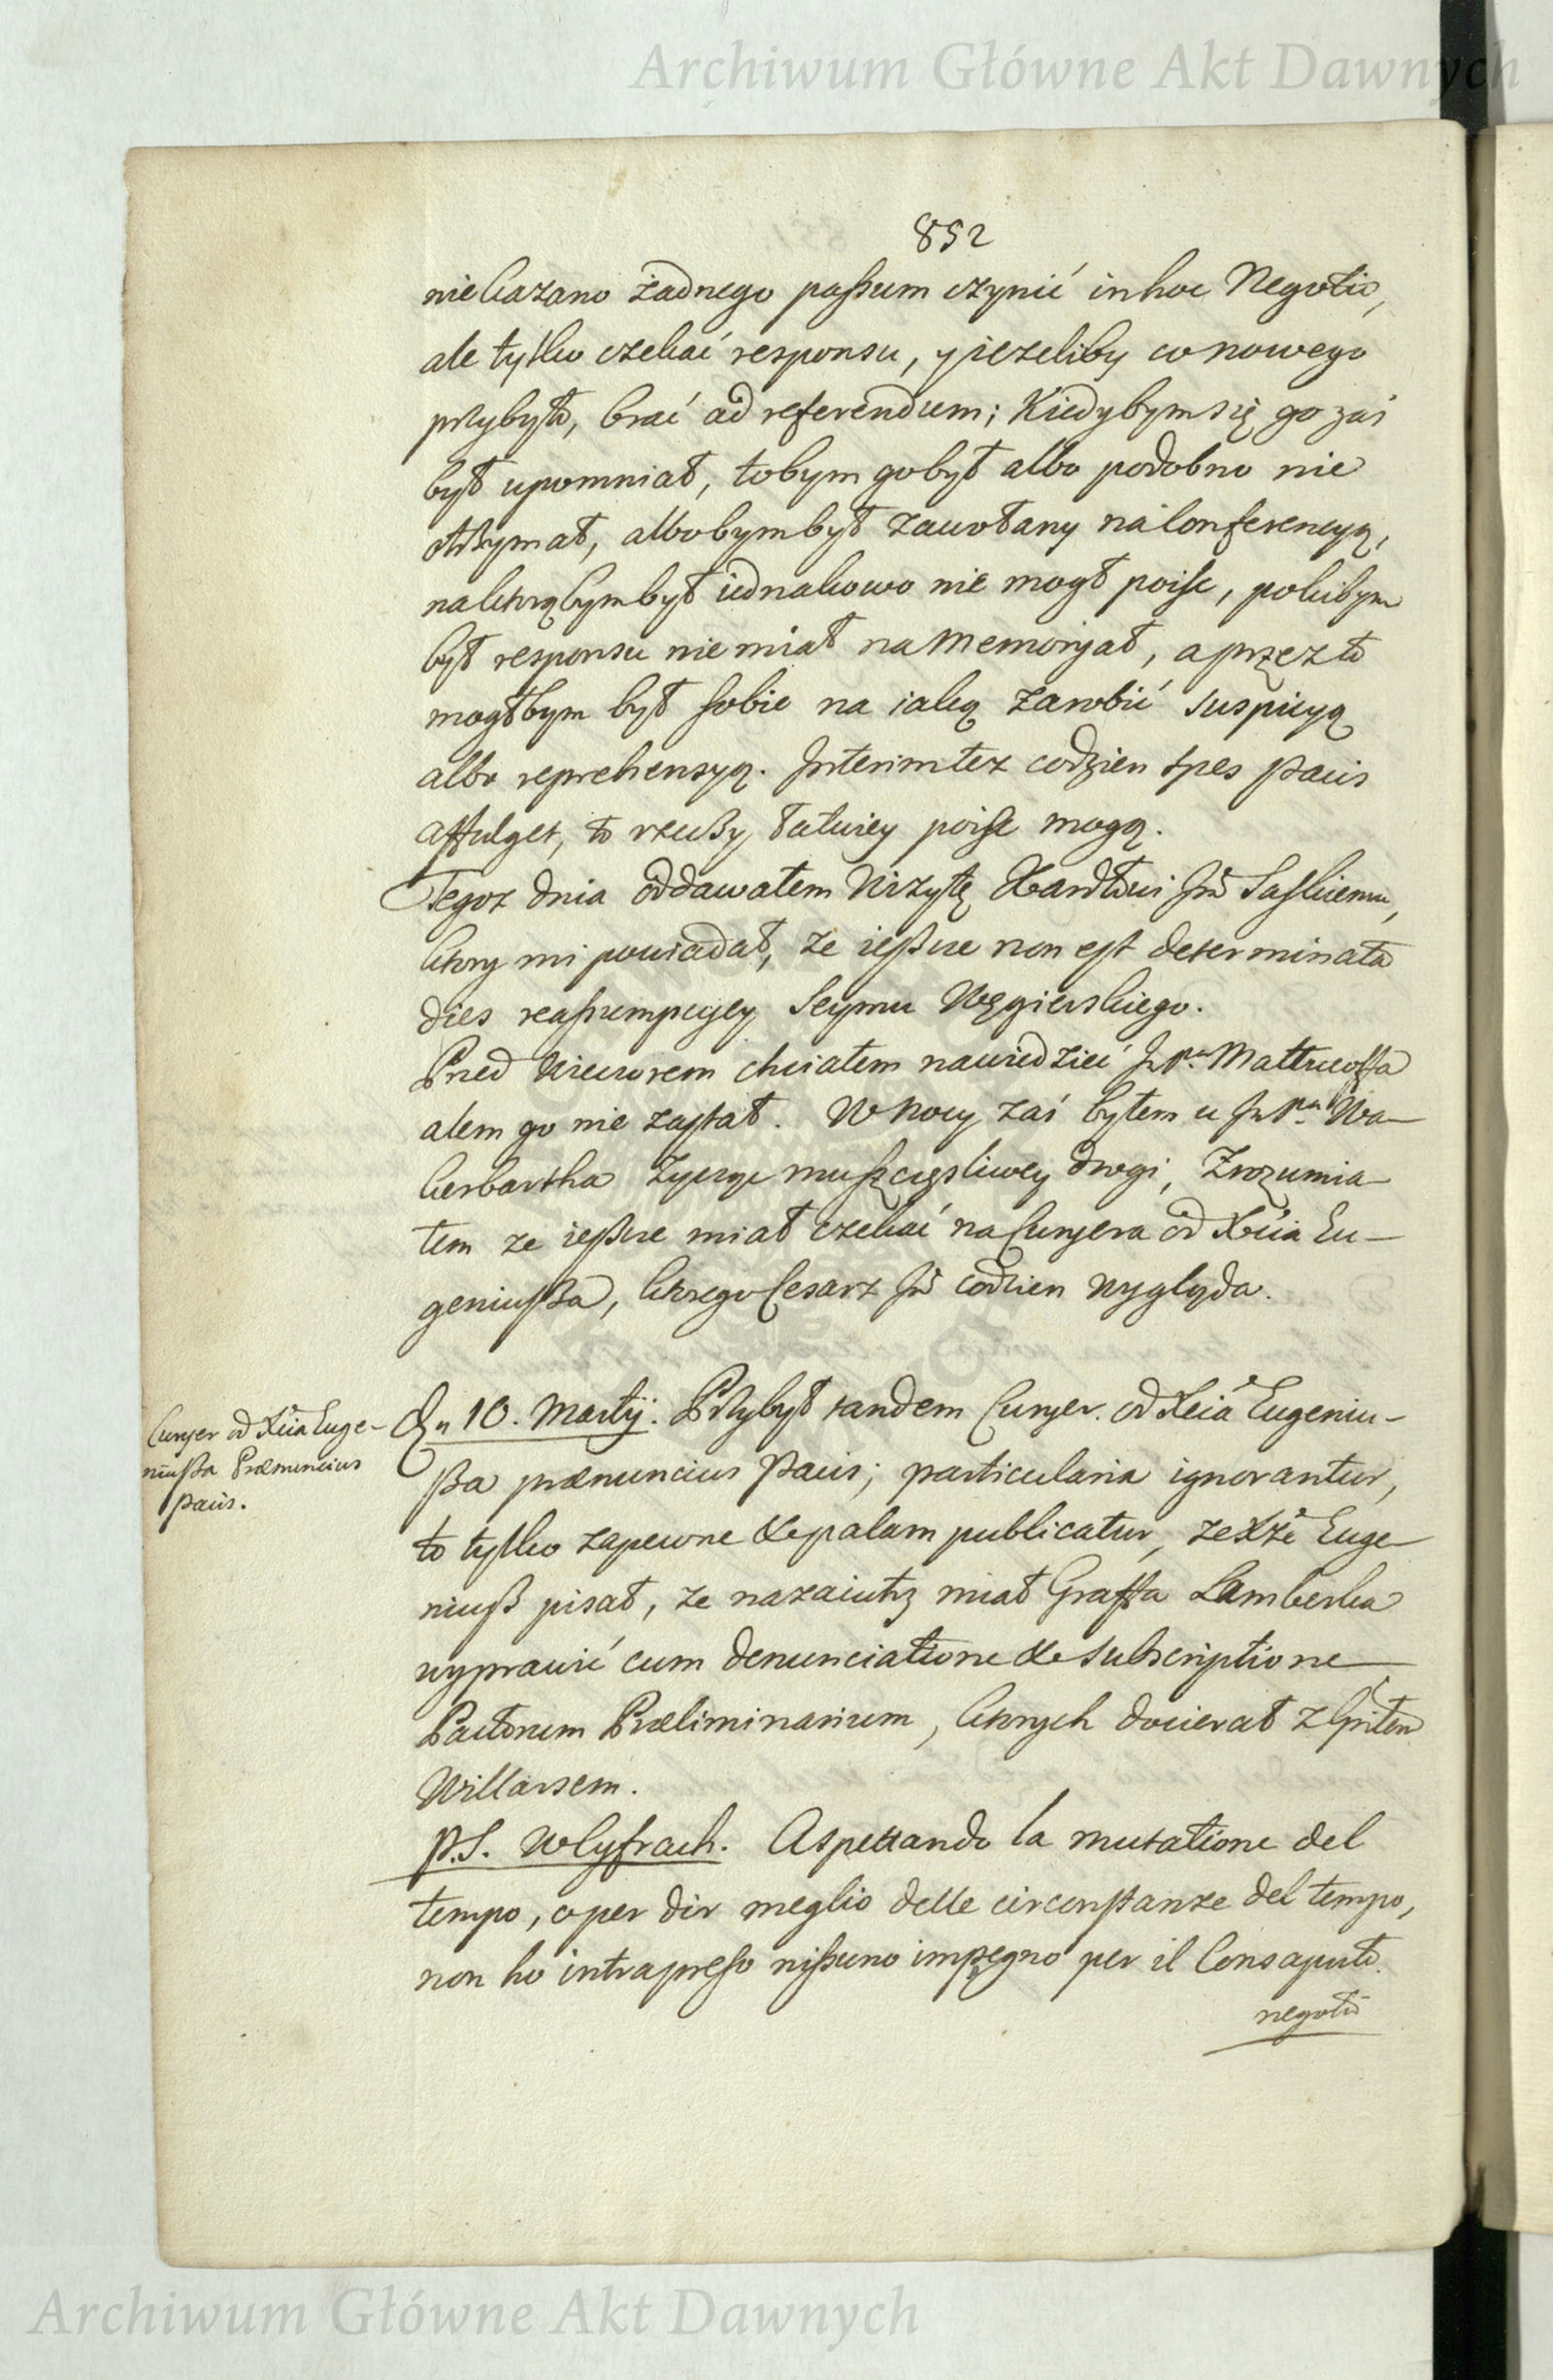 Archiwum Główne Akt Dawnych
852
nie kazano żadnego passum czynić in hoc Negotio,
ale tylko czekać responsu, y jezeliby co nowego
przybyło, brać ad referendum; Kiedybym się go zaś
był upomniał, tobym go był albo podobno nie
otrzymał, albobym był zawołany na konferencyą,
na ktorąbym był iednakowo nie mogł poisc, pokibym
był responsu nie miał na Memoryał, a przez to
mogłbym był sobie na iaką zarobić suspicyą
albo reprehensyą. Interim tez codzien spes pacis
affulget, to rzeczy łatwiey poisc mogą.
Tegoz dnia oddawałem Wizytę Kardłowi Jmści Saskiemu,
ktory mi powiadał, ze ieszcze non est determinata
dies reassumpcyey Seymu Węgierskiego.
Przed Wieczorem chciałem nawiedzić JmPa Mattrucossa
alem go nie zastał. W Nocy zaś byłem u JmPna Wa-
kerbartha zycząc mu szczęsliwey drogi, Zrozumia-
łem ze ieszcze miał czekać na Curyera od Xcia Eu-
geniusza, ktorego Cesarz Jmść codzien wygląda.
Curyer od Xcia Euge-
niusza Prænuncius
Pacis.
Dn 10. Martij. Przybył tandem Curyer. od Xcia Eugeniu-
sza prænuncius Pacis; particularia ignorantur,
to tylko zapewne & palam publicatur, ze Xże Euge-
niusz pisał, ze nazaiutrz miał Graffa Lamberka
wyprawić cum denunciatione & subscriptione
Pactorum Præliminarium, ktorych docierał z Gnłem
Willarsem.
P.S. w Cyfrach. Aspettando la mutatione del
tempo, o per dir meglio delle circonstanze del tempo,
non ho intrapreso nissuno impegno per il Consaputo
negotio
Archiwum Główne Akt Dawnych